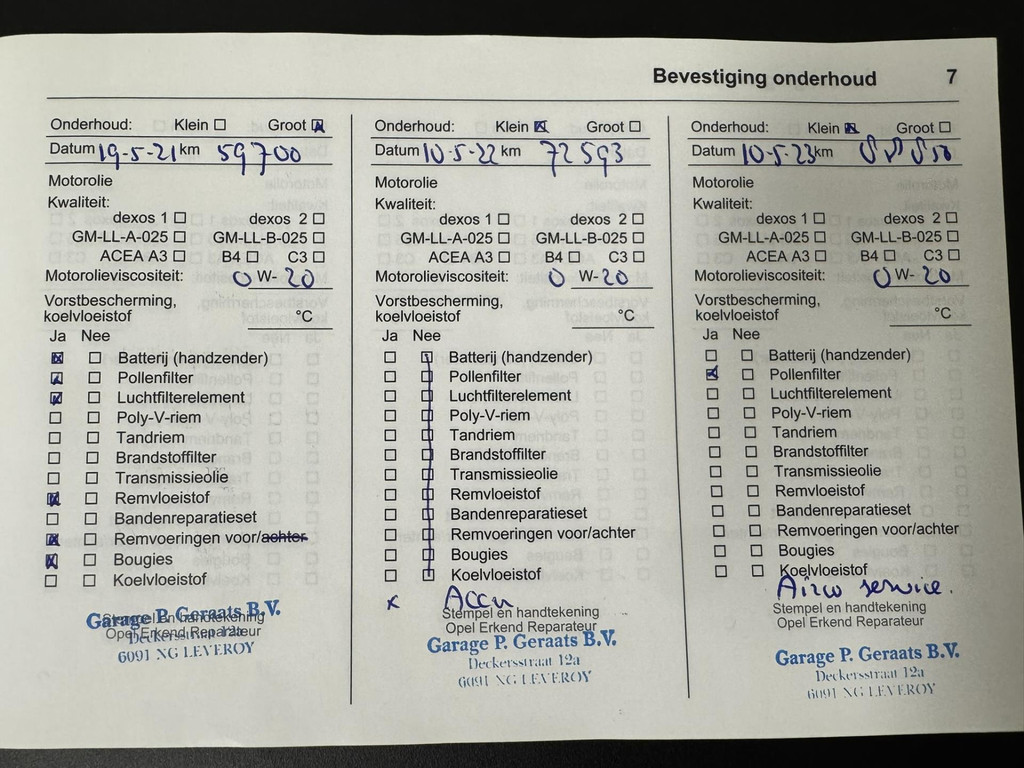 Bevestiging onderhoud 7
Onderhoud: Klein Groot
Datum 19-5-21 km 59700
Motorolie
Kwaliteit:
dexos 1 dexos 2
GM-LL-A-025 GM-LL-B-025
ACEA A3 B4 C3
Motorolieviscositeit: 0 W- 20
Vorstbescherming,
koelvloeistof °C
Ja Nee
Batterij (handzender)
Pollenfilter
Luchtfilterelement
Poly-V-riem
Tandriem
Brandstoffilter
Transmissieolie
Remvloeistof
Bandenreparatieset
Remvoeringen voor/achter
Bougies
Koelvloeistof
Garage P. Geraats B.V.
Stempel en handtekening
Opel Erkend Reparateur
Deckersstraat 12a
6091 NG LEVEROY
Onderhoud: Klein Groot
Datum 10-5-22 km 72593
Motorolie
Kwaliteit:
dexos 1 dexos 2
GM-LL-A-025 GM-LL-B-025
ACEA A3 B4 C3
Motorolieviscositeit: 0 W- 20
Vorstbescherming,
koelvloeistof °C
Ja Nee
Batterij (handzender)
Pollenfilter
Luchtfilterelement
Poly-V-riem
Tandriem
Brandstoffilter
Transmissieolie
Remvloeistof
Bandenreparatieset
Remvoeringen voor/achter
Bougies
Koelvloeistof
x Accu
Stempel en handtekening
Opel Erkend Reparateur
Garage P. Geraats B.V.
Deckersstraat 12a
6091 NG LEVEROY
Onderhoud: Klein Groot
Datum 10-5-23 km
Motorolie
Kwaliteit:
dexos 1 dexos 2
GM-LL-A-025 GM-LL-B-025
ACEA A3 B4 C3
Motorolieviscositeit: 0 W- 20
Vorstbescherming,
koelvloeistof °C
Ja Nee
Batterij (handzender)
Pollenfilter
Luchtfilterelement
Poly-V-riem
Tandriem
Brandstoffilter
Transmissieolie
Remvloeistof
Bandenreparatieset
Remvoeringen voor/achter
Bougies
Koelvloeistof
Airco service.
Stempel en handtekening
Opel Erkend Reparateur
Garage P. Geraats B.V.
Deckersstraat 12a
6091 NG LEVEROY